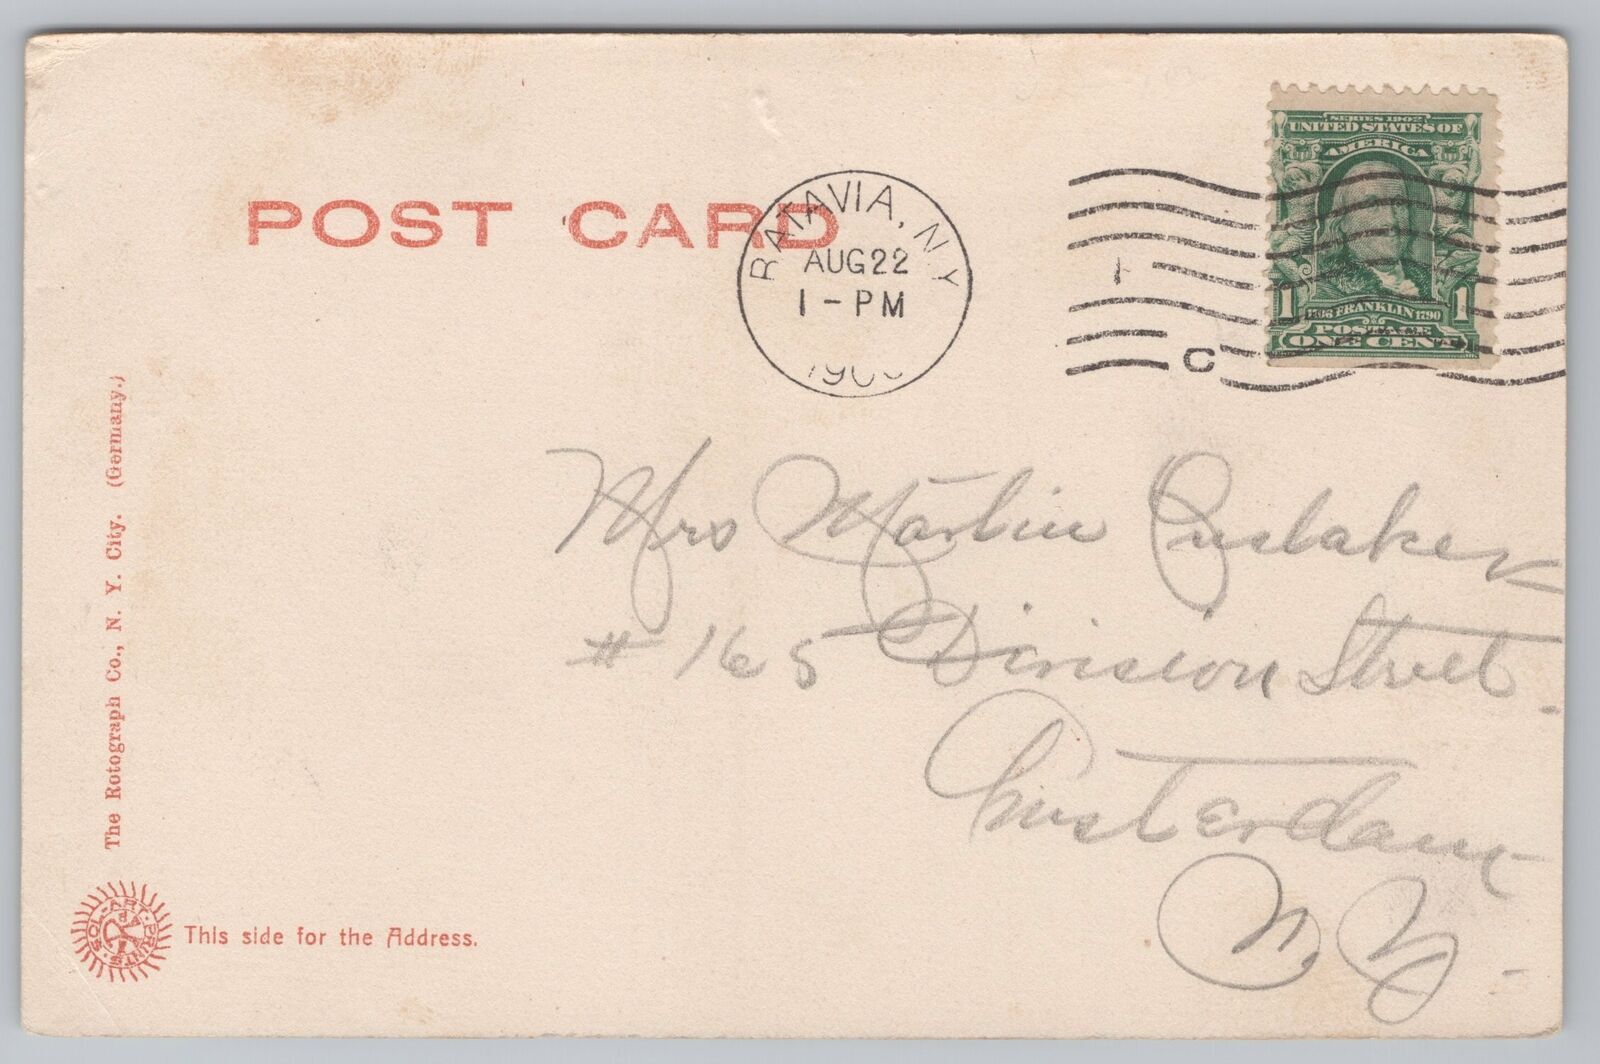 POST CARD
BATAVIA, N Y
AUG 22
1 - PM
C
SERIES 1902
UNITED STATES OF
AMERICA
1 1
FRANKLIN 1790
POSTAGE
ONE CENT
Mrs Martin
# 165 Division Street
Amsterdam
N. Y.
The Rotograph Co., N. Y. City. (Germany.)
SOL-ART PRINTS
This side for the Address.